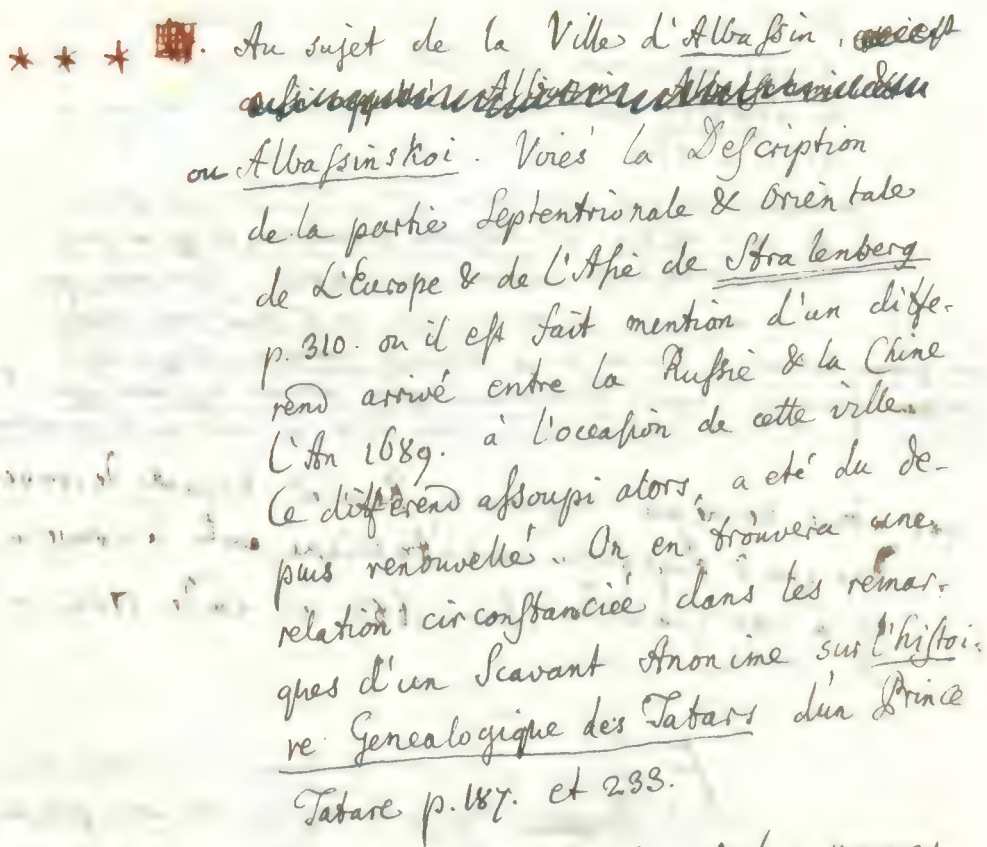 * * * . Au sujet de la Ville d'Albassin,
ou Albassinskoi. Voiés la Description
de la partie Septentrionale & Orientale
de L'Europe & de L'Asie de Stralenberg
p. 310. ou il est fait mention d'un diffe-
rend arrivé entre la Russie & la Chine
L'An 1689. à l'occasion de cette ville.
Ce différend assoupi alors, a eté du de-
puis renouvellé. On en trouvera une
relation circonstanciée dans les remar-
ques d'un Scavant Anonime sur l'histoi-
re Genealogique des Tatars d'un Prince
Tatare p. 187. et 233.